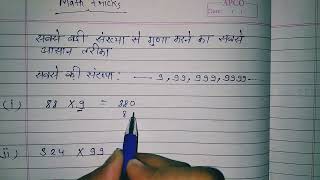 Math tricks
सबसे बड़ी संख्या से गुणा करने का सबसे
आसान तरीका
सबसे बड़ी संख्या :— 9, 99, 999, 9999 —
(i) 88 × 9 = 880
8
(ii) 324 × 99